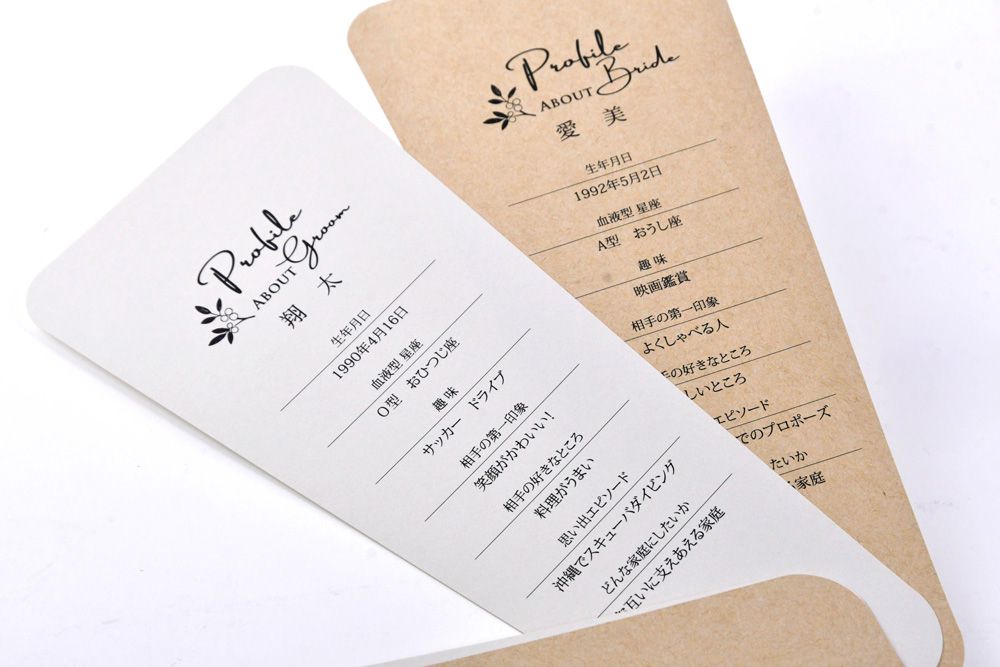 Profile
ABOUT Groom
翔 太
生年月日
1990年4月16日
血液型 星座
O型 おひつじ座
趣 味
サッカー ドライブ
相手の第一印象
笑顔がかわいい!
相手の好きなところ
料理がうまい
思い出エピソード
沖縄でスキューバダイビング
どんな家庭にしたいか
互いに支えあえる家庭
Profile
ABOUT Bride
愛 美
生年月日
1992年5月2日
血液型 星座
A型 おうし座
趣 味
映画鑑賞
相手の第一印象
よくしゃべる人
手の好きなところ
しいところ
エピソード
でのプロポーズ
たいか
る家庭